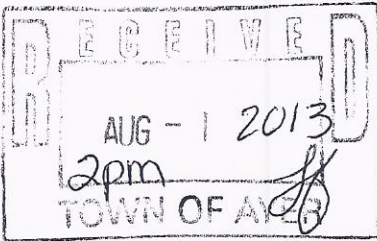 RECEIVED
AUG - 1 2013
2pm
TOWN OF AYER